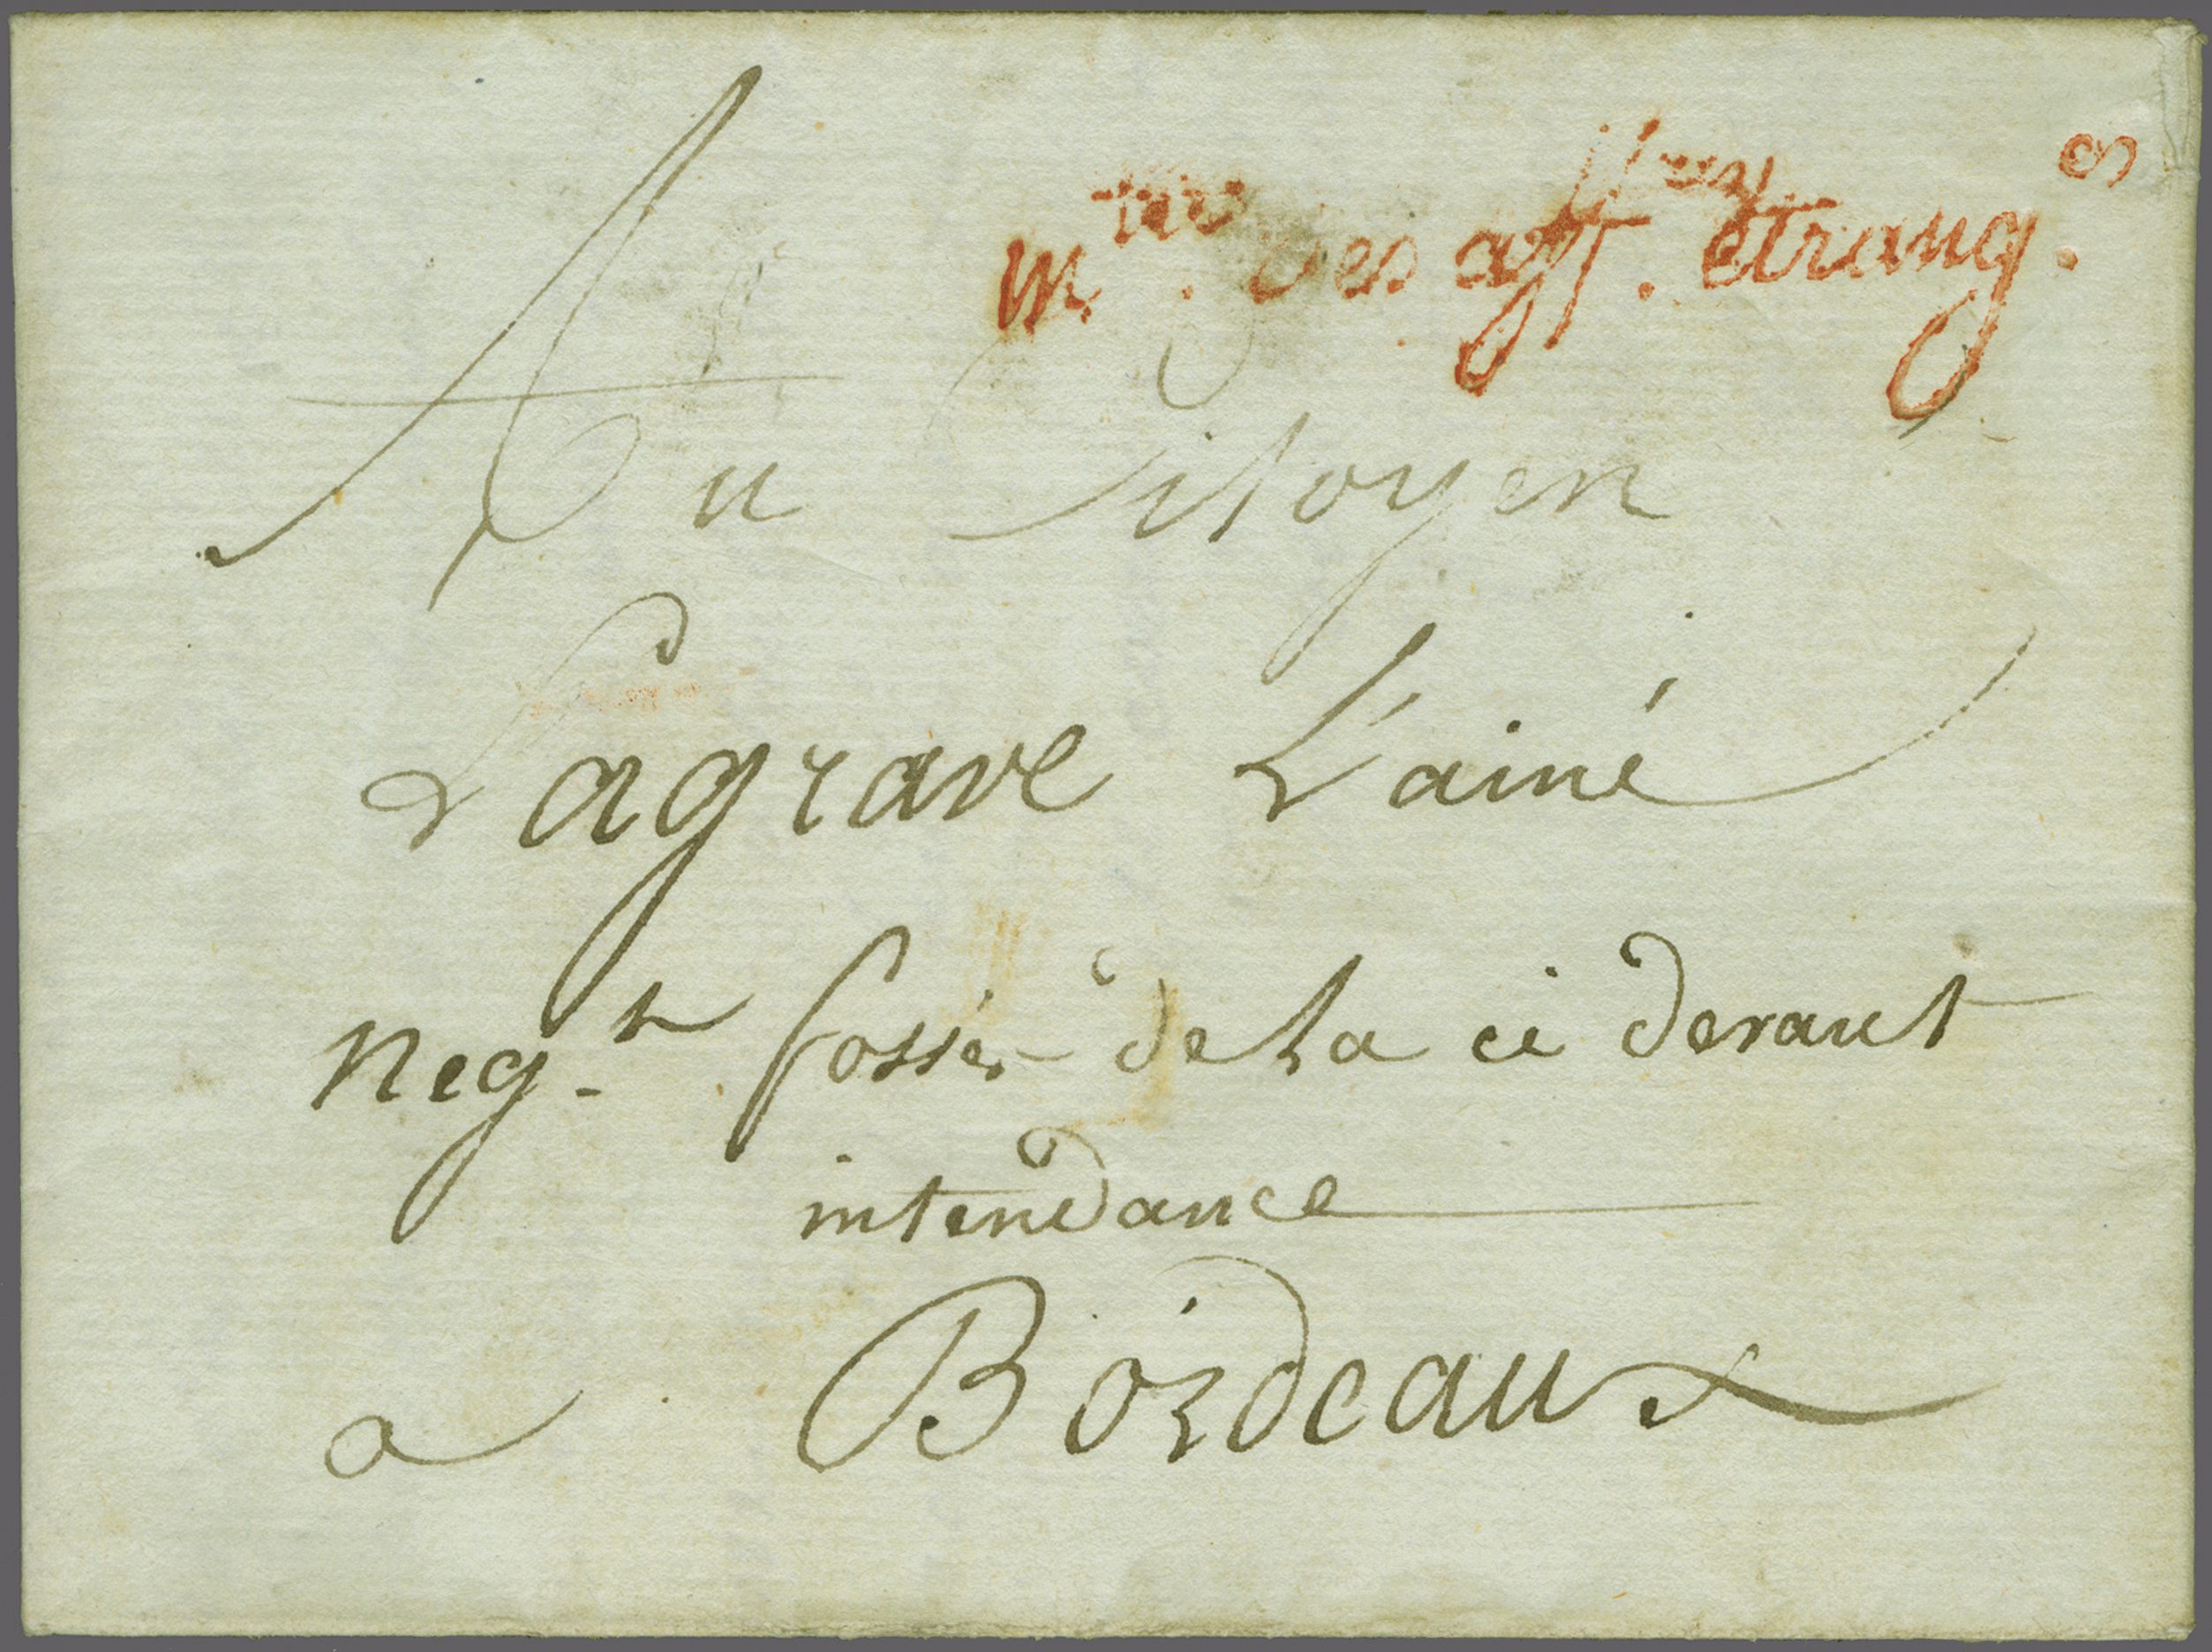 Mtere. des aff.res étrang.es
Au Citoyen
Lagrave L'ainé
Negt. fossés de La ci devant
intendance
a Bordeaux